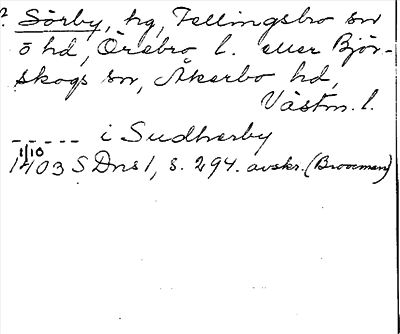 ? Sörby, hg, Fellingsbro sn
ö hd, Örebro l. eller Björ-
skogs sn, Åkerbo hd,
Västm. l.
------ i Sudherby
1/10
1403 SDns 1, s. 294. avskr. (Brocman)